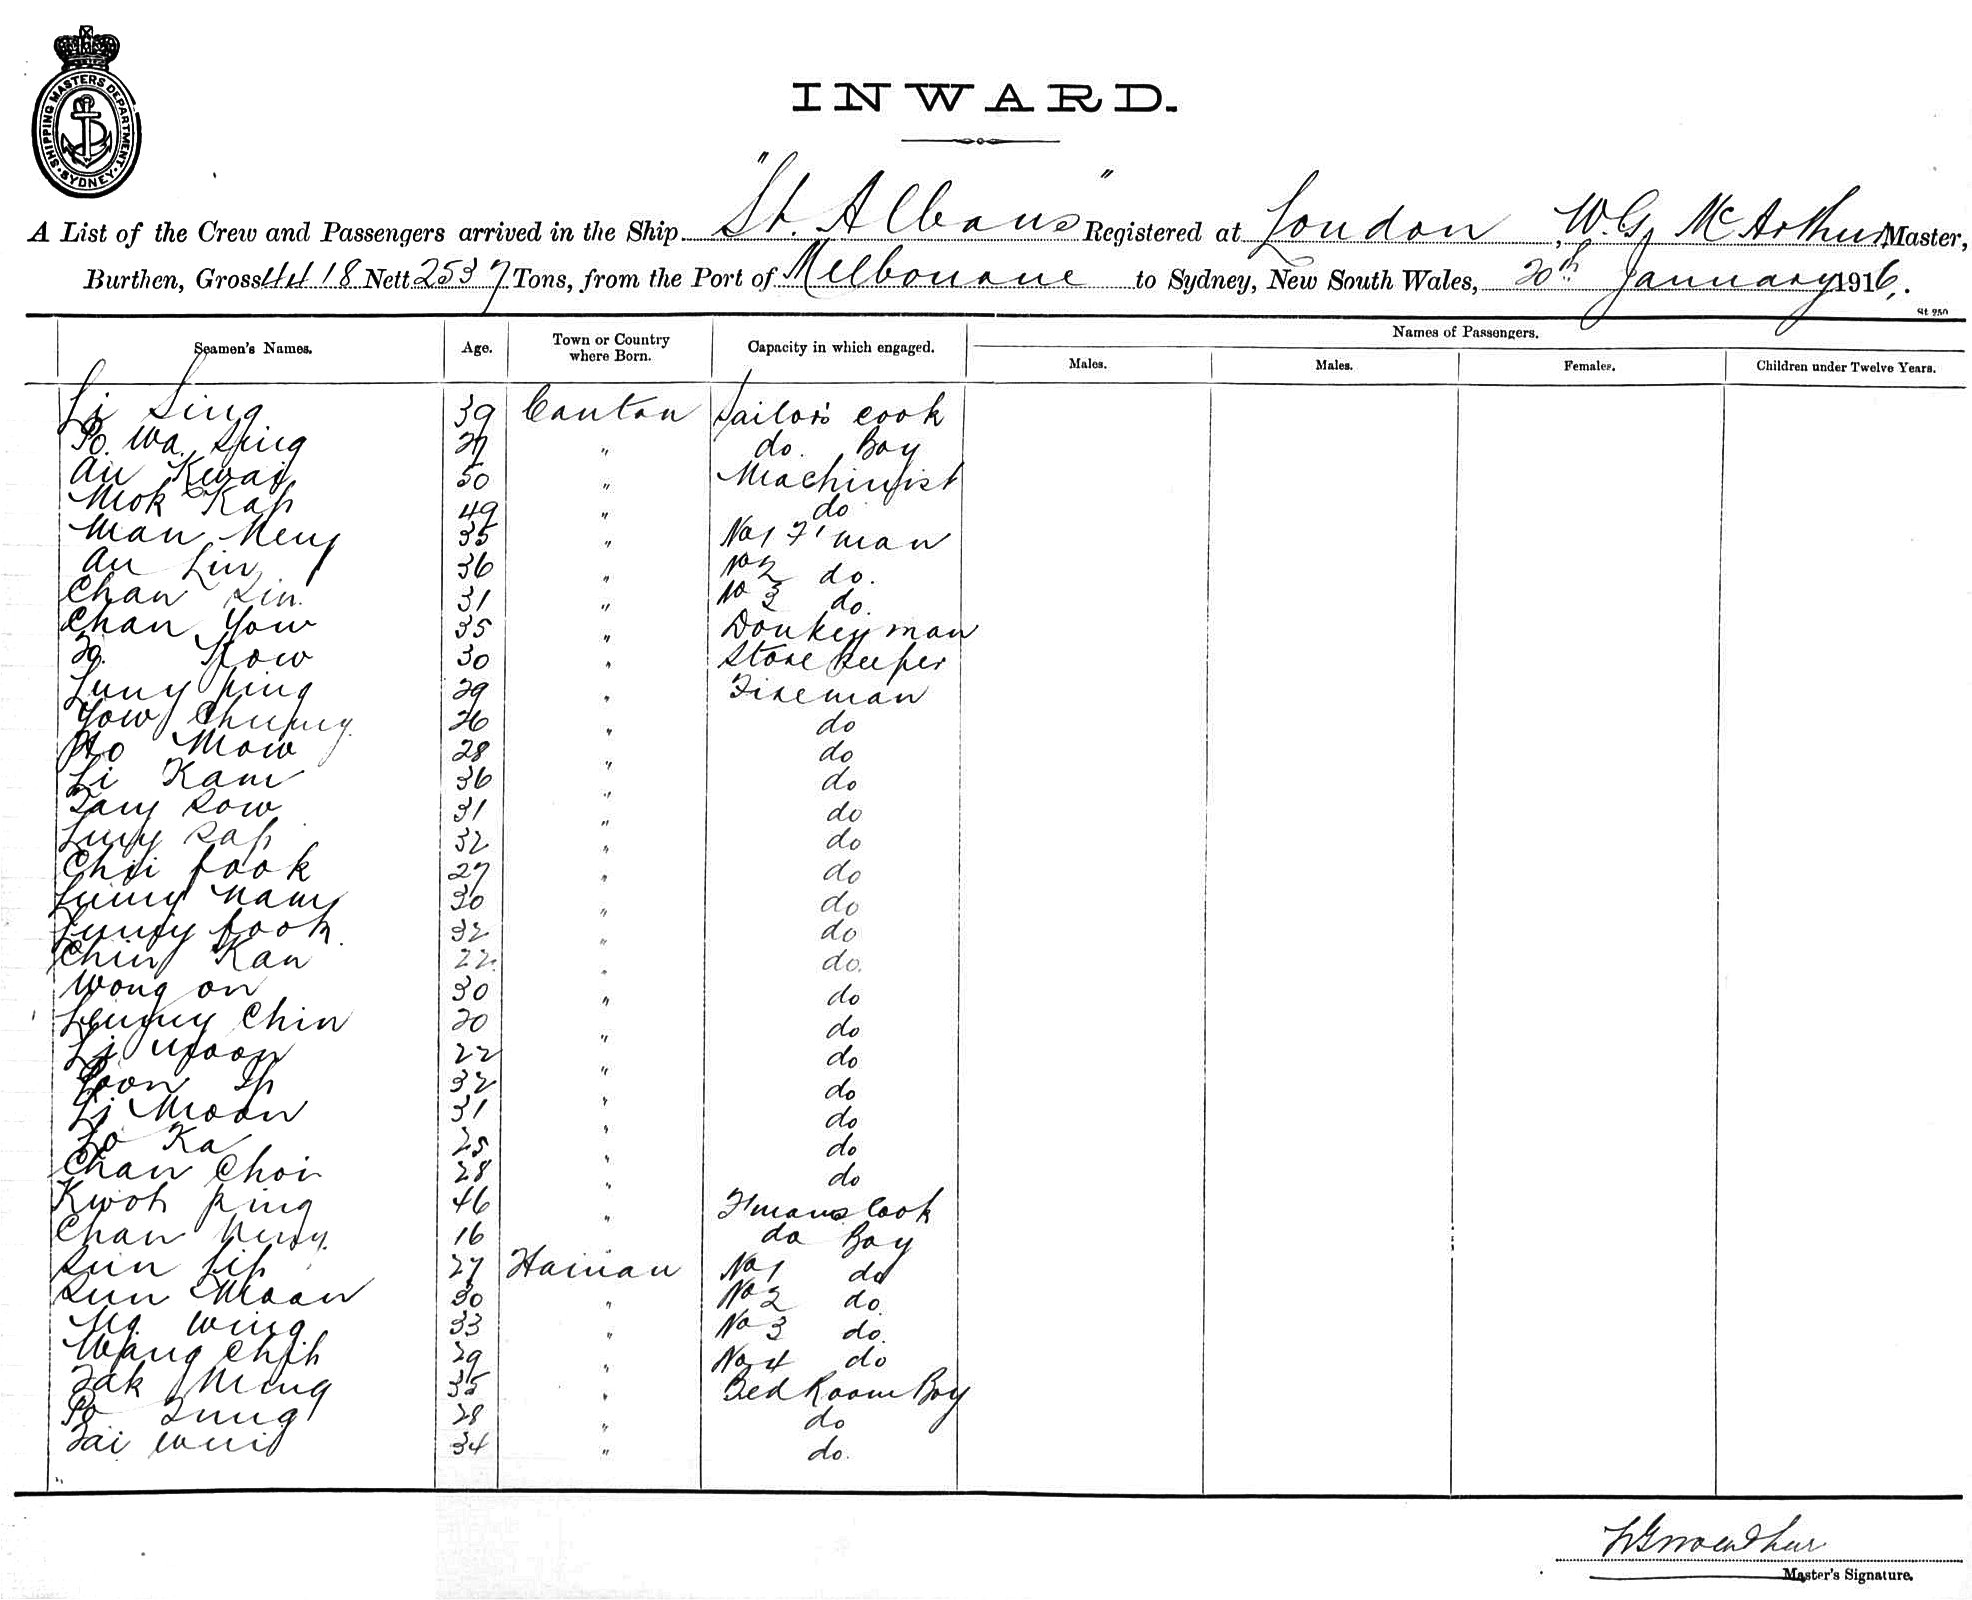 SHIPPING MASTERS DEPARTMENT
SYDNEY
INWARD.
A List of the Crew and Passengers arrived in the Ship "St. Albans" Registered at London, W. G. McArthur Master,
Burthen, Gross 4418 Nett 2537 Tons, from the Port of Melbourne to Sydney, New South Wales, 20th January 1916.
St 250
Seamen's Names. Age. Town or Country where Born. Capacity in which engaged. Names of Passengers.
Males. Males. Females. Children under Twelve Years.
Li Sing 39 Canton Sailors cook
Po. Wa. Sing 27 " do. Boy
Au Kwai 50 " Machinist
Mok Kap 49 " do
Man 35 " No 1 F'man
Au Lin 36 " No 2 do.
Chan Lin. 31 " No 3 do.
Chan Yow 35 " Donkeyman
30 " Store keeper
Lung ping 29 " Fireman
Yow Chung 26 " do
Ho Mow 28 " do
Li Kam 36 " do
Tang Sow 31 " do
Lung Sap 32 " do
Choi fook 27 " do
Lung Nam 30 " do
Lung fook 32 " do
Chin Kan 22 " do.
Wong on 30 " do
Leung Chin 20 " do
Li 22 " do
32 " do
Li Moon 31 " do
Lo Ka 25 " do
Chan Choi 28 " do
Kwok ping 46 " F'mans Cook
Chan 16 " do Boy
Sun Lip 27 Hainan No 1 do
Sun Moon 30 " No 2 do.
Ng Wing 33 " No 3 do.
Wang Chih 29 " No 4 do
Tak Ming 35 " Bed Room Boy
Po Tung 28 " do
Tai Wui 34 " do.
W G McArthur
Master's Signature.